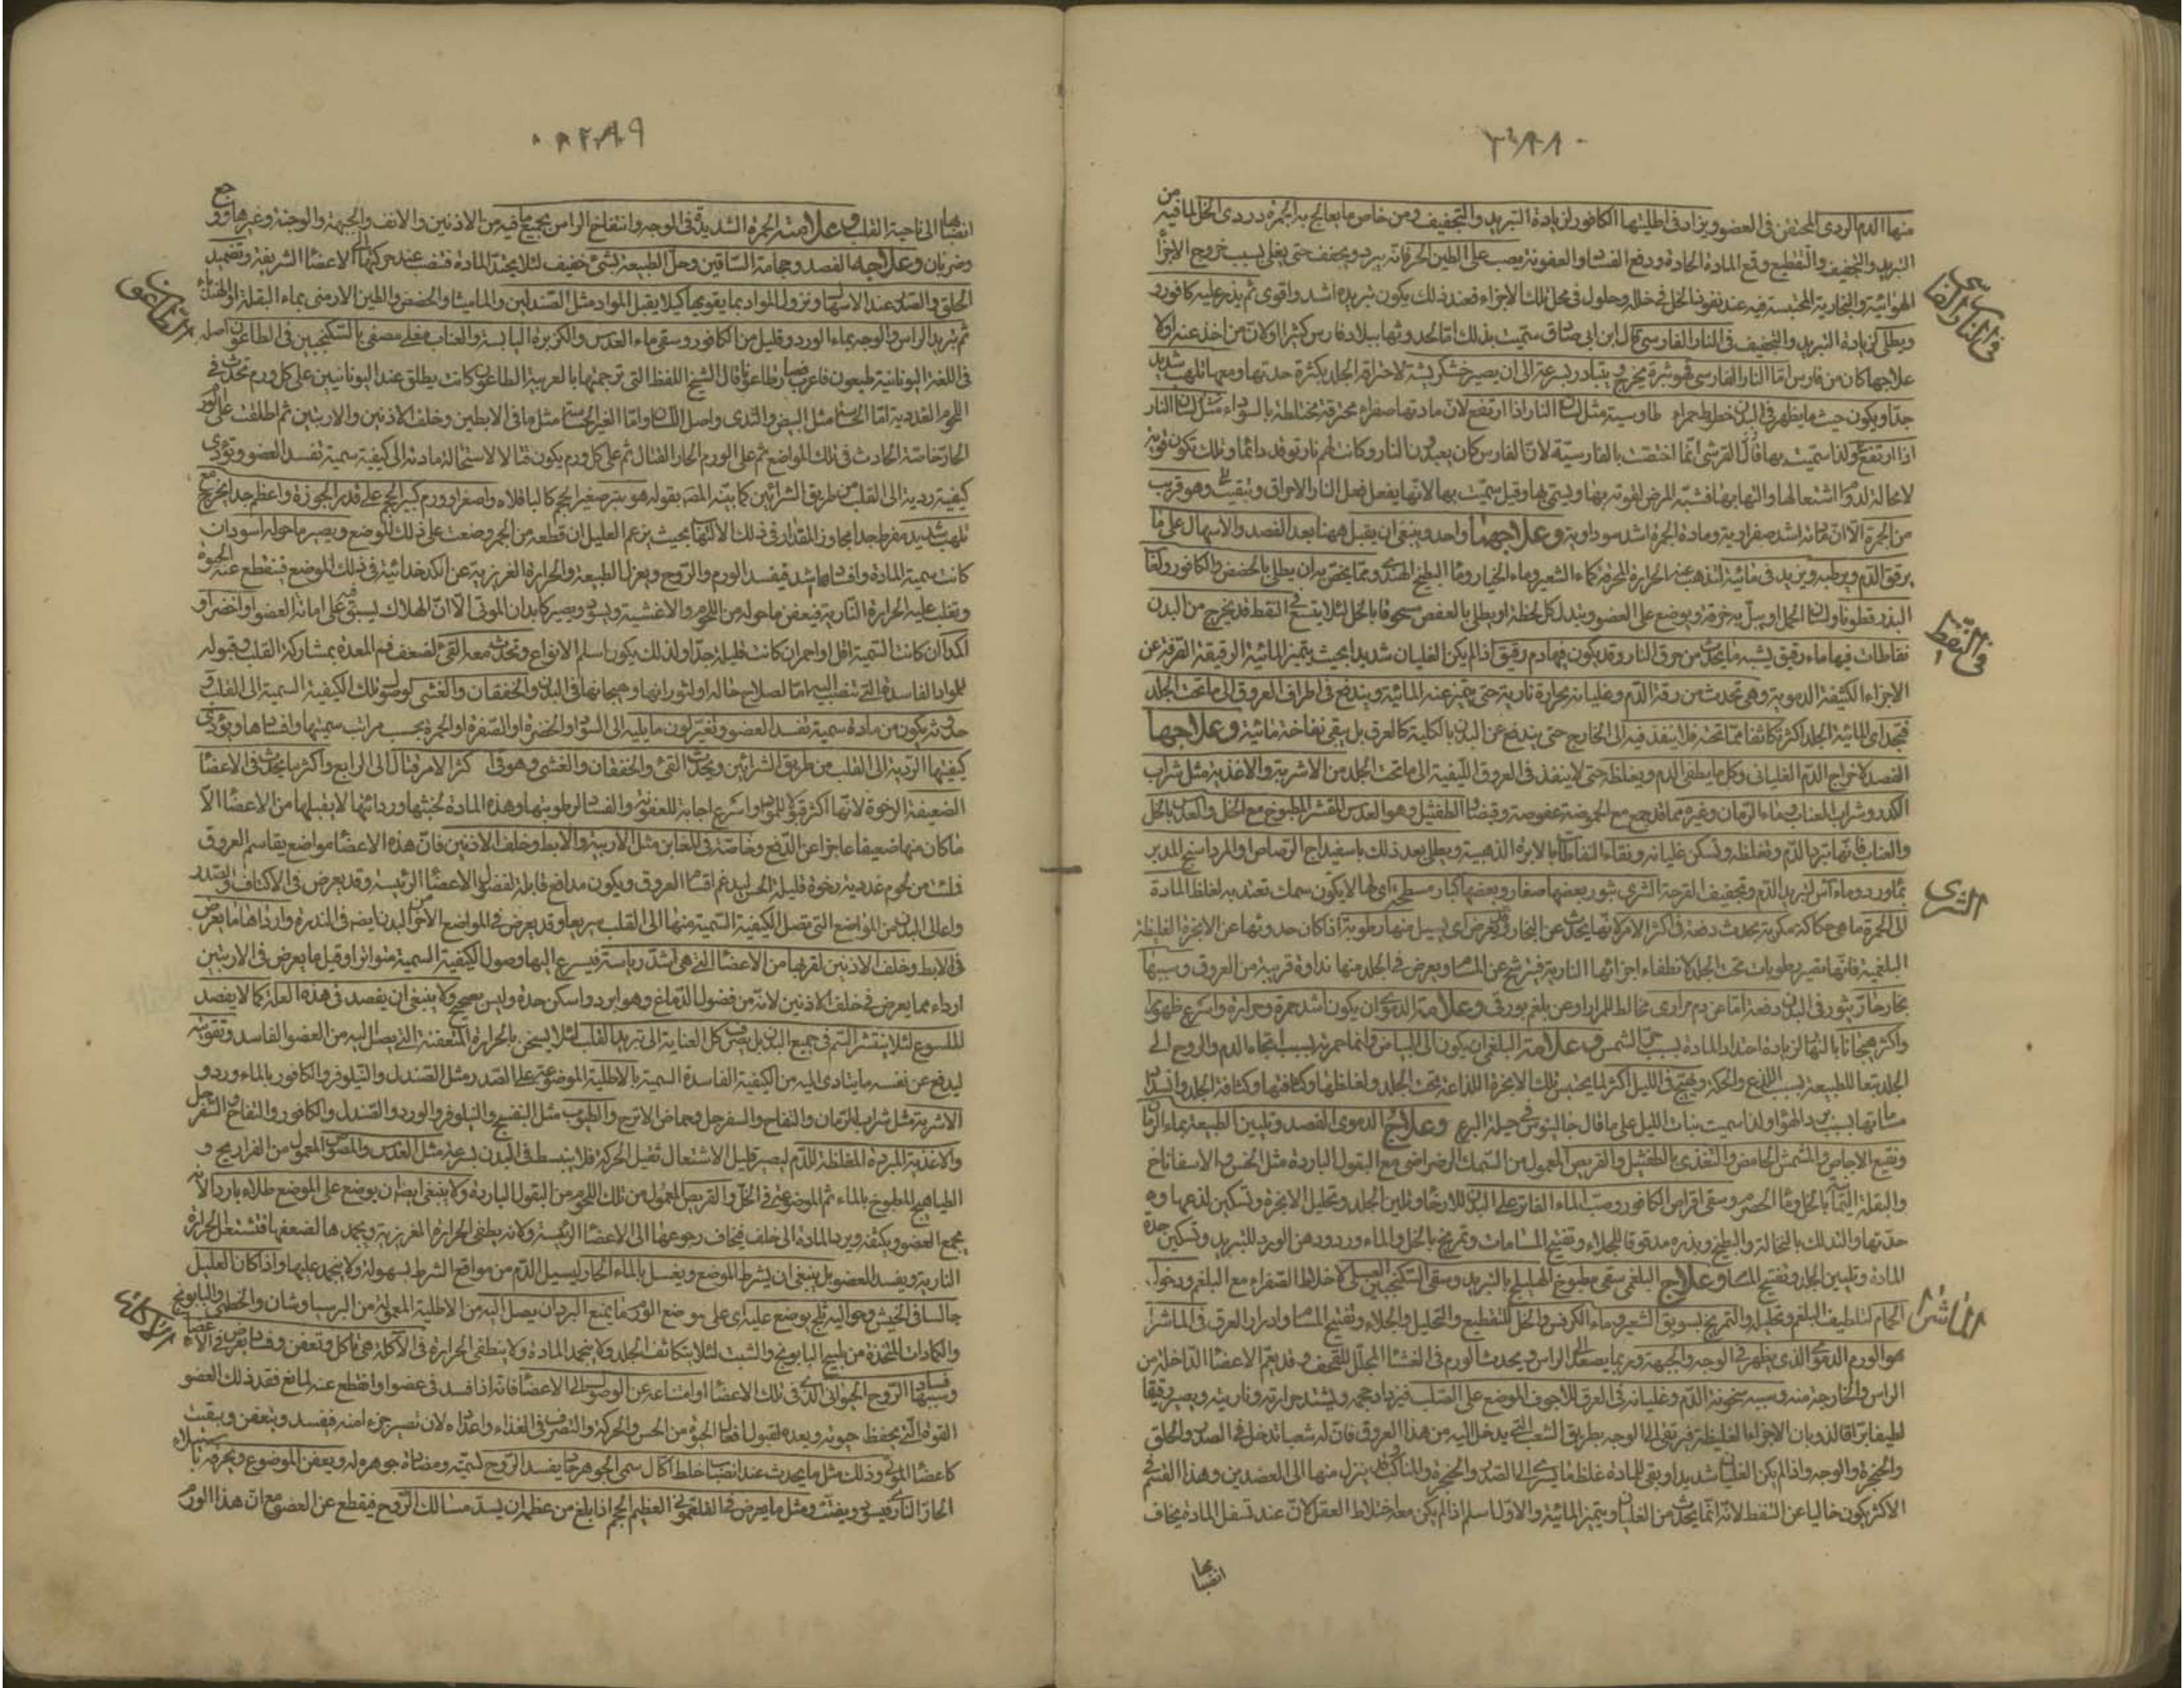 منها الدم الردى المحتقن فى العضو ويزاد فى اطليتها الكافور لزيادة التبريد والتجفيف ومن خاص ما يعالج به الجمرة دردى الخل لما فيه من
التبريد والتجفيف والتقطيع وقمع المادة الحادة ودفع الفساد والعفونة يصب على الطين الحر فانه يبرد ويجفف حتى يغلى بسبب خروج الاجزا
الهوائية والبخارية المحتبسة فيه عند نفوذ الخل فى خلله وحلول فى محل تلك الاجزاء فعند ذلك يكون تبريده اشد واقوى ثم يذر عليه كافور
ويطلى لزيادة التبريد والتجفيف فى النار الفارسى قال ابن ابى صادق سميت بذلك اما لحدوثها ببلاد فارس كثيرا او لان من اخذ عنه اولا
علاجها كان من فارس اما النار الفارسى فهو بثرة يخرج ويتبادر بسرعة الى ان يصير خشكريشة لاحراقه الجلد بكثرة حدتها ومعها تلهب شديد
جدا ويكون حيث ما يظهر فى البدن خطوط حمراء طاوسية مثل لسان النار اذا ارتفع لان مادتها صفراء محترقة مختلطة بالسوداء مثل لسان النار
اذا ارتفع ولذا سميت بها قال القرشى انما اختصت بالفارسية لان الفارس كان يعبدون النار وكانت لهم نار توقد دائما وتلك تكون قوية
لا محالة لدوام اشتعالها والتهابها فشبه المرض لقوته بها ويسمى بها وقيل سميت بها لانها يفعل فعل النار الاحراق وتنفيط وهو قريب
من الجمرة الا ان مادته اشد صفراوية ومادة الجمرة اشد سوداوية وعلاجهما واحد وينبغى ان يقبل ههنا بعد الفصد والاسهال على ما
يرقق الدم ويرطبه ويزيد فى مائيته لتذهب عنه الحرارة المحرقة كماء الشعير وماء الخيار وماء البطيخ الهندى ومما يخص به ان يطلى بالحضض والكافور ولعاب
البذر قطونا ولسان الحمل او يبل به خرقة ويوضع على العضو ويبدل كل لحظة او يطلى بالعفص مسحوقا بالخل لئلا يتسع فى النفط قد يخرج من البدن
نفاطات فيها ماء رقيق يشبه ما يحدث من حرق النار وقد يكون فيها دم رقيق اذا لم يكن الغليان شديدا بحيث يتميز المائية الرقيقة القرفة عن
الاجزاء الكثيفة الدموية وهى تحدث من رقة الدم وغليانه بحرارة نارية حتى يتميز عنه المائية ويندفع فى اطراف العروق الى ما تحت الجلد
فتجد اى المائية الجلد اكثر تكاثفا مما تحته فلا ينفذ فيه الى الخارج حتى يندفع عن البدن بالكلية كالعرق بل يبقى نفاخة مائية وعلاجها
الفصد لاخراج الدم الغليانى وكل ما يطفى الدم ويغلظه حتى لا ينفذ فى العروق الليفية الى ما تحت الجلد من الاشربة والاغذية مثل شراب
الكدر وشراب العناب وماء الرمان وغيره مما قد جمع مع الحموضة عفوصة وقبضا والطفشيل وهو العدس المقشر المطبوخ مع الخل والعدس بالخل
والعناب فانها تبرد الدم وتغلظه وتسكن غليانه وتفقأ النفاطات بالابرة الذهبية ويطلى بعد ذلك باسفيداج الرصاص او المرداسنج المدبر
بماورد وماء اس لتبريد الدم وتجفيف القرحة الشرى بثور بعضها صغار وبعضها كبار مسطحة اى لها لا يكون سمك تعتد به لغلظ المادة
الى الحمرة ما هى حكاكة مكربة يحدث دفعة فى اكثر الامر لانها يحدث عن البخار وقد يعرض اى يسيل منها رطوبة اذا كان حدوثها عن الابخرة الغليظة
البلغمية فانها تصير رطوبات تحت الجلد لانطفاء اجزائها النارية فيترشح عن المسام ويعرض فى الجلد منها نداوة قريبة من العروق وسببها
بخار حار يثور فى البدن دفعة اما عن دم مرارى مخالط للمرار او عن بلغم بورقى وعلامة الدموى ان يكون اشد حمرة وحرارة واسرع ظهورا
واكثر هيجانا بالنهار لزيادة احتداد المادة بسبب حر الشمس وعلامة البلغمى ان يكون الى البياض وانما حمرته بسبب اتجاه الدم والروح الى
الجلد تبعا للطبيعة بسبب اللذع والحكة ويهيج فى الليل اكثر لما يحتبس تلك الابخرة اللذاعة تحت الجلد ولغلظها وكثافتها وكثافة الجلد وانسداد
مساماتها بسبب برد الهواء ولذا سميت بنات الليل على ما قال جالينوس فى حيلة البرء وعلاج الدموى الفصد وتليين الطبيعة بماء الرمان
ونقيع الاجاص والمشمش الحامض والتغذى بالطفشيل والقريص المعمول من السمك الرضراضى مع البقول الباردة مثل الخس والاسفاناخ
والبقلة اليمانية بالخل وماء الحصرم وسقى اقراص الكافور وصب الماء الفاتر على البدن للارخاء وتليين الجلد وتحليل الابخرة وتسكين لذعها و
حدتها والتدلك بالنخالة والبطيخ وبذره مدقوقا للجلاء وتفتيح المسامات وتمريخ بالخل والماء ورد ودهن الورد للتبريد وتسكين حدة
المادة وتليين الجلد وتفتيح المسام وعلاج البلغمى سقى مطبوخ الهليلج بالتبريد وسقى السكنجبين العسلى لاختلاط الصفراء مع البلغم ودخول
الحمام لتلطيف البلغم وتحليله والتمريخ بسويق الشعير وماء الكرفس والخل للتقطيع والتحليل والجلاء وتفتيح المسام وادرار العرق فى الماشرا
هو الورم الدموى الذى يظهر فى الوجه والجبهة وربما يصعد الى الراس ويحدث الورم فى الغشا المجلل للقحف وقد يعم الاعضا الداخلة من
الراس والخارجة منه وسببه سخونة الدم وغليانه فى العرق الاجوف الموضع على الصلب فيزداد حجمه ويشتد حرارته وناريته ويصير رقيقا
لطيفا براقا لذوبان الاجزاء الغليظة فيرتقى الى الوجه بطريق الشعب التى يدخل اليه من هذا العروق فان له شعبا تدخل فى الصدر والحلق
والحنجرة والوجه واذا لم يكن الغليان شديدا وبقى للمادة غلظ ما يسرى الى الصدر والحنجرة والمناكب بل ينزل منها الى العضدين وهذا القسم فى
الاكثر يكون خاليا عن النفط لانه انما يحدث من الغليان ويتميز المائية والاول اسلم اذا لم يكن معه اختلاط العقل لان عند تسفل المادة يخاف
انصبابها
فى النار الفارسى
فى النفط
الشرى
الماشرا
انصبابها الى ناحية القلب وعلامته الحمرة الشديدة فى الوجه وانتفاخ الراس بجميع ما فيه من الاذنين والانف والجبهة والوجنة وغيرها ووجع
وضربان وعلاجه الفصد وحجامة الساقين وحل الطبيعة بشئ خفيف لئلا يحتد المادة فتنصب عند حركتها الى الاعضا الشريفة وتضميد
الحلق والصدر عند الاسهال ونزول المواد بما يقويها كيلا يقبل المواد مثل الصندلين والماميثا والحضض والطين الارمنى بماء البقلة او الهندبا
ثم تبريد الراس والوجه بماء الورد وقليل من الكافور وسقى ماء العدس والكزبرة اليابسة والعناب مغلى مصفى بالسكنجبين فى الطاعون اصله
فى اللغة اليونانية طيعون فاعرب فصار طاعونا قال الشيخ اللفظ التى ترجمتها بالعربية الطاعون كانت يطلق عند اليونانيين على كل ورم تحدث فى
اللحم الغددية اما الحساس مثل البيض والثدى واصل اللسان واما الغير الحساس مثل ما فى الابطين وخلف الاذنين والاربتين ثم اطلقت على الورم
الحار خاصة الحادث فى تلك المواضع ثم على الورم الحار القتال ثم على كل ورم يكون قتالا لاستحالة مادته الى كيفية سمية تفسد العضو وتؤدى
كيفية ردية الى القلب من طريق الشرائين كما بينه المص بقوله هو بثر صغير الحجم كالباقلاء واصغر او ورم كبير الحجم على قدر الجوزة واعظم جدا يخرج مع
تلهب شديد مفرط جدا مجاوز المقدار فى ذلك الالتهاب بحيث يزعم العليل ان قطعة من الجمر وضعت على ذلك الموضع ويصير ما حوله اسود ان
كانت سمية المادة وافسادها اشد فيفسد الورم والروح ويعزل الطبيعة والحرارة الغريزية عن الكدخدائية فى ذلك الموضع فتنقطع عنه الحيوة
وتغلب عليه الحرارة النارية فيعفن ما حوله من اللحوم والاغشية ويسود ويصير كابدان الموتى الا ان الهلاك يسبق على اماتة العضو او اخضر او
اكد ان كانت السمية اقل او احمر ان كانت قليلة جدا ولذلك يكون اسلم الانواع وتحدث معه القئ لضعف فم المعدة بمشاركة القلب وقبوله
للمواد الفاسدة التى تنصب اليها
حدوثه يكون من مادة سمية تفسد العضو وتغير لون ما يليه الى السواد او الخضرة او الصفرة او الحمرة بحسب مراتب سميتها وافسادها ويؤدى
كيفيتها الردية الى القلب من طريق الشرائين ويحدث القئ والخفقان والغشى وهو فى اكثر الامر قتال الى الرابع واكثر ما يحدث فى الاعضا
الضعيفة الرخوة لانها اكثر قبولا للمواد واسرع اجابة للعفونة والفساد لرطوبتها وهذه المادة لخبثها وردائتها لا يقبلها من الاعضا الا
ما كان منها ضعيفا عاجزا عن الدفع وخاصة فى المغابن مثل الاربية والابط وخلف الاذنين فان هذه الاعضا مواضع يقاسم العروق
ملئت من لحوم غددية رخوة قليلة الحس ليدعم اقسام العروق ويكون مدافع قابلة لفضول الاعضا الرئيسة وقد يعرض فى الاكتاف والصدر
واعالى البدن من المواضع التى تصل الكيفية السمية منها الى القلب سريعا وقد يعرض فى المواضع الاخر من البدن ايضا فى الندرة وارداها ما يعرض
فى الابط وخلف الاذنين لقربها من الاعضا التى هى اشد رياسة فيسرع اليها وصول الكيفية السمية متواترا وقيل ما يعرض فى الاربتين
ارداء مما يعرض فى خلف الاذنين لانه من فضول الدماغ وهو ابرد واسكن حدة وليس بصحيح ولا ينبغى ان يفصد فى هذه العلة كما لا يفصد
الملسوع لئلا ينتشر السم فى جميع البدن بل يصرف كل العناية الى تبريد القلب لئلا يسخن بالحرارة المتعفنة التى يصل اليه من العضو الفاسد وتقويته
ليدفع عن نفسه ما يتادى اليه من الكيفية الفاسدة السمية بالاطلية الموضوعة على الصدر مثل الصندل والنيلوفر والكافور بالماء ورد و
الاشربة مثل شراب الرمان والتفاح والسفرجل وحماض الاترج والطيوب مثل البنفسج والنيلوفر والورد والصندل والكافور والتفاح والسفرجل
والاغذية المبردة المغلظة للدم ليصير قليل الاشتعال ثقيل الحركة فلا ينبسط فى البدن بسرعة مثل العدس والمصوص المعمول من الفراريج و
الطياهيج المطبوخ بالماء ثم الموضوعة فى الخل والقريص المعمول من تلك اللحوم من البقول الباردة ولا ينبغى ايضا ان يوضع على الموضع طلاء بارد لانه
يجمع العضو ويكثفه ويرد المادة الى خلف فيخاف رجوعها الى الاعضا الرئيسة ولانه يطفى الحرارة الغريزية ويجمدها لضعفها فتشتعل الحرارة
النارية ويفسد العضو بل ينبغى ان يشرط الموضع ويغسل بالماء الحار ليسيل الدم من مواضع الشرط بسهولة ولا ينجمد عليها واذا كان العليل
جالسا فى الخيش وحواليه ثلج يوضع عليه اى على موضع الورم ما يمنع البرد ان يصل اليه من الاطلية المعمولة من البرسياوشان والخطمى والبابونج
والكمادات المتخذة من طبيخ البابونج والشبت لئلا يتكاثف الجلد ولا ينجمد المادة ولا ينطفى الحرارة فى الاكلة هى تاكل وتعفن وفساد يعرض فى الاعضا
وسببها فساد الروح الحيوانى الذى فى تلك الاعضا او امتناعه عن الوصول الى الاعضا فانه اذا فسد فى عضو او انقطع عنه لمانع فقد ذلك العضو
القوة التى يحفظ حيوته ويعده لقبول افعال الحيوة من الحس والحركة والتصرف فى الغذاء واعداده لان تصير جزء منه فيفسد ويتعفن ويتفتت
كاعضا الموتى وذلك مثل ما يحدث عند انصباب خلط اكال سمى الجوهر حاد يفسد الروح لسميته ومضادة جوهره له ويعفن الموضوع ويحرقه باستيلاء
الحار النارى فيسود ويفتت ومثل ما يعرض فى الفلغمونى العظيم الحجم اذا بلغ من عظمه ان يسد مسالك الروح فيقطع عن العضو مع ان هذا الورم
الطاعون
الاكلة